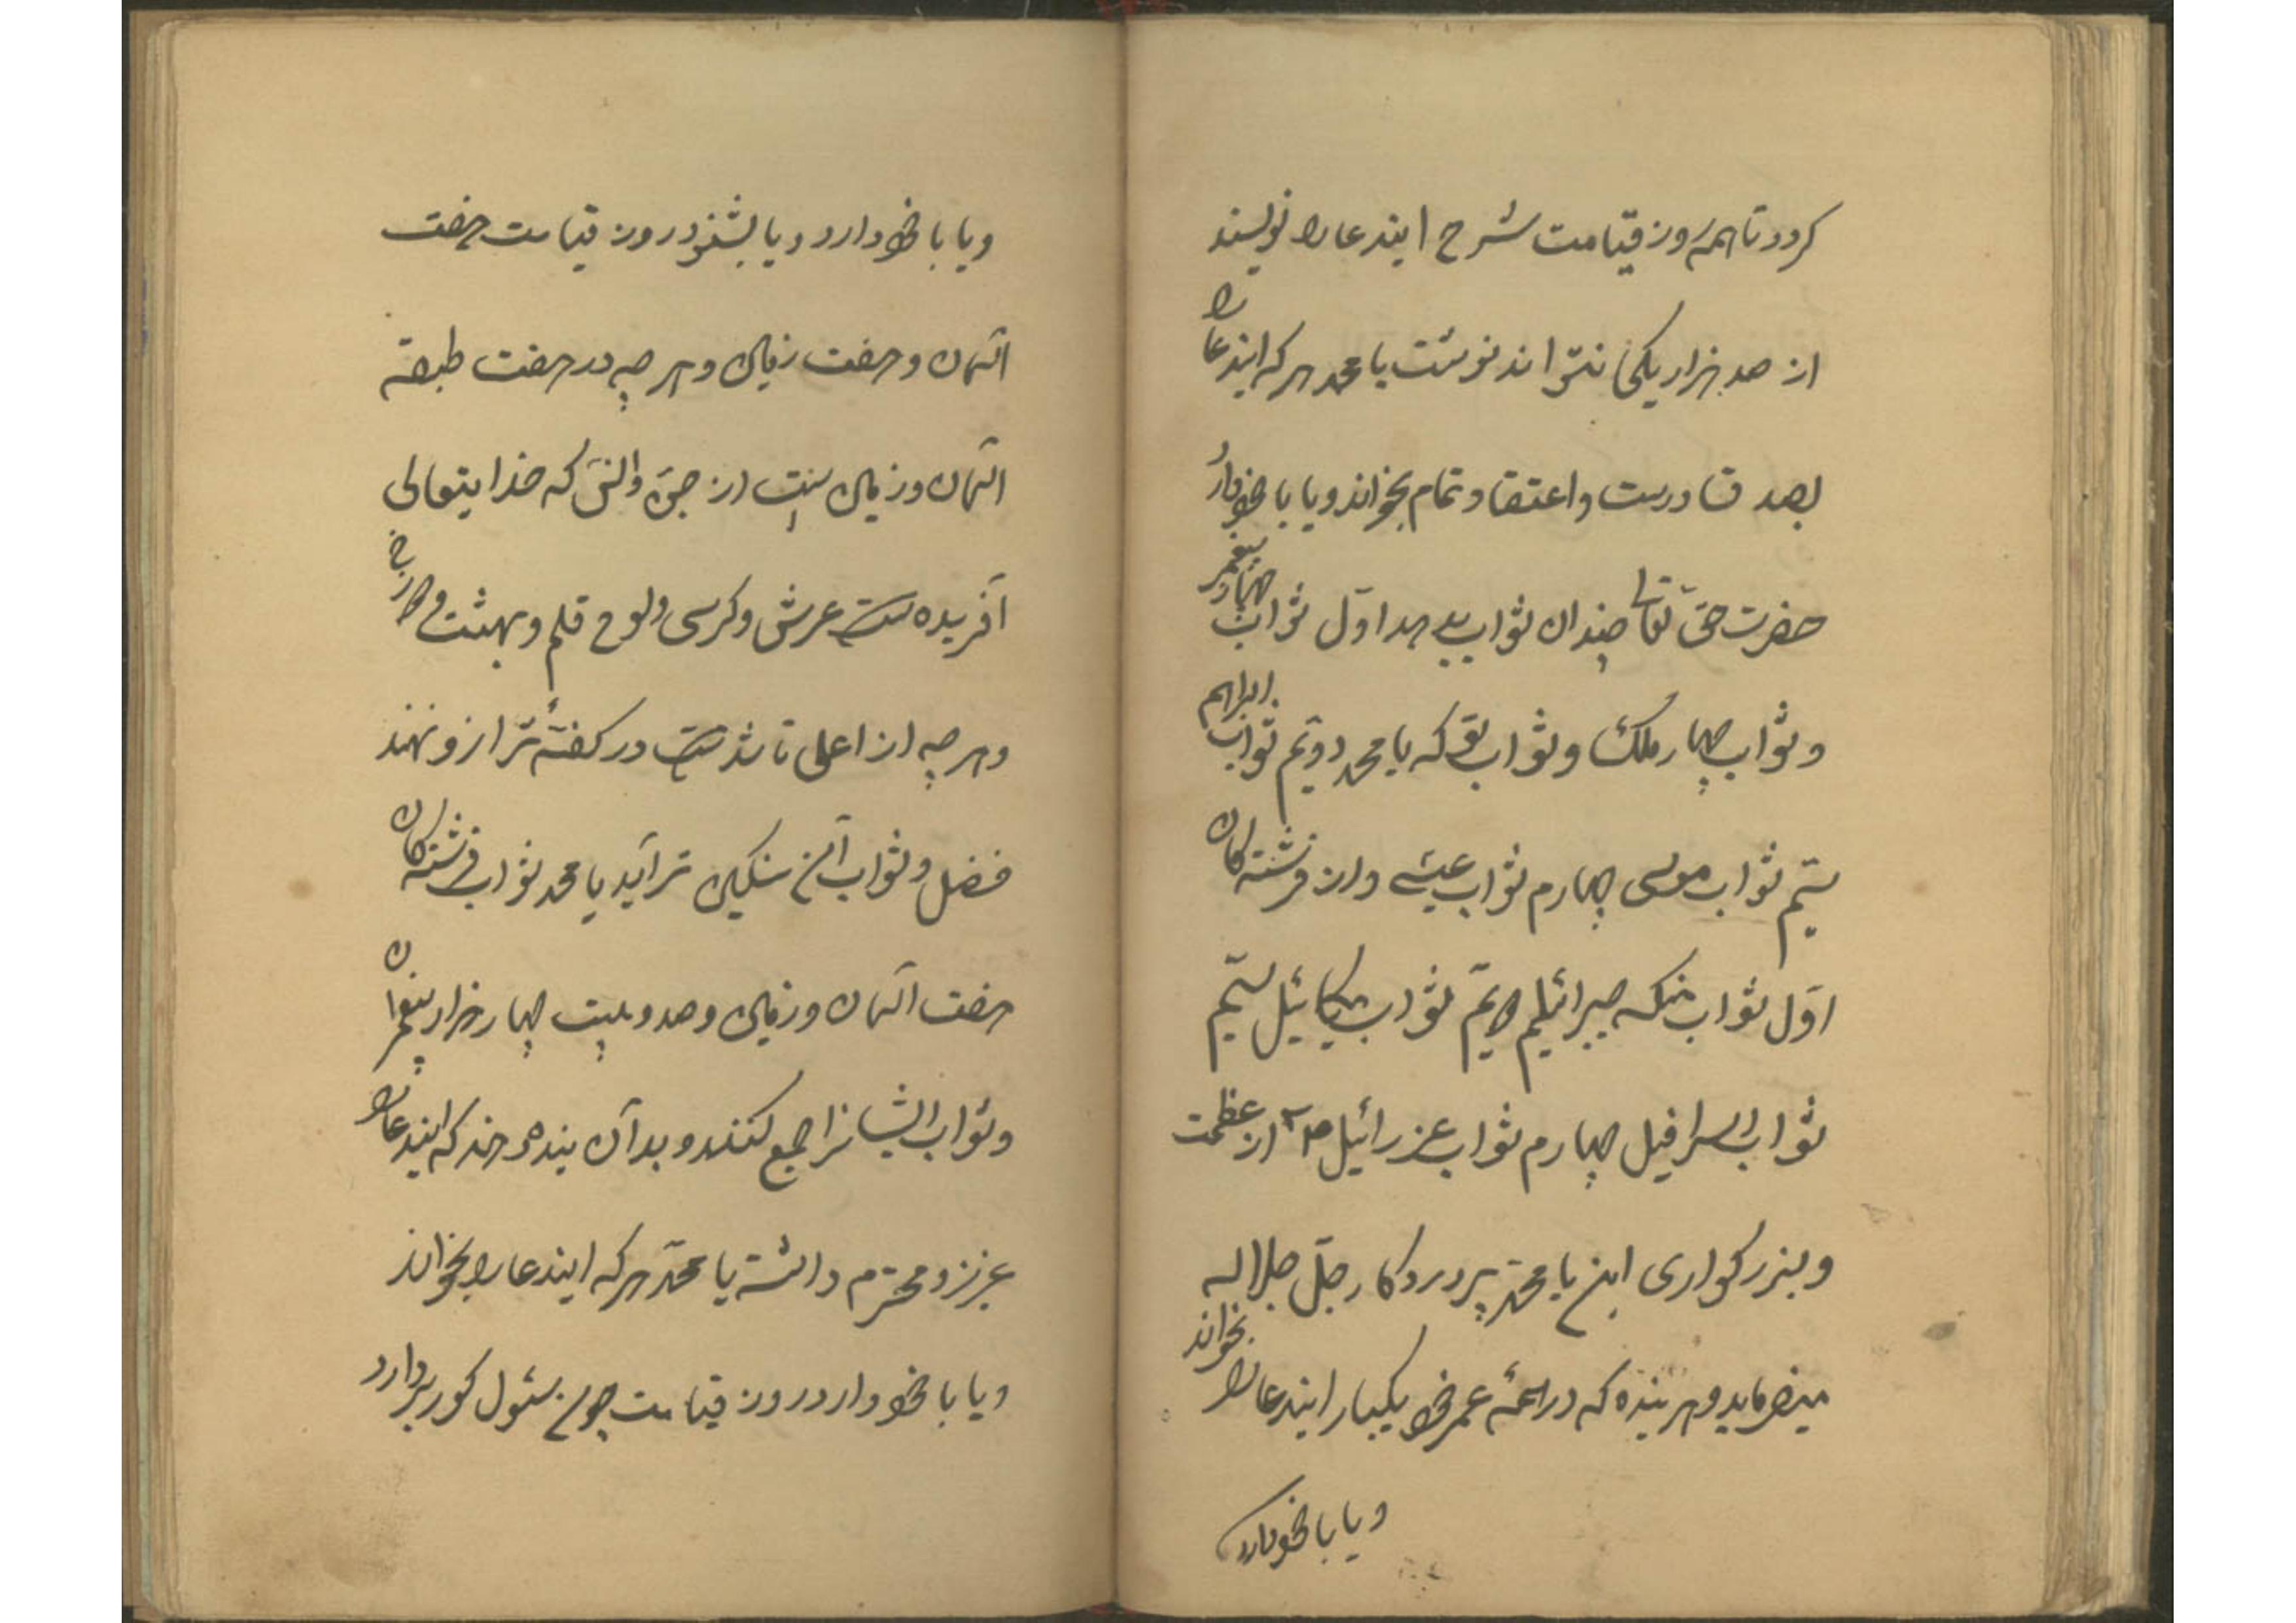 کردد تا همه روز قیامت شرح ایندعارا نویسند
از صد هزار یکی نتواند نوشت یا محمد هر که ایندعا را
بصد قنا درست و اعتقاد تمام بخواند و یا با خود دارد
حضرت حق تعالی چندان ثواب بدهد اول ثواب چهار پیغمبر
و ثواب چهار ملک و ثواب تو که یا محمد دویم ثواب ابراهیم
سیم ثواب موسی چهارم ثواب عیسی و از فرشته کان
اول ثواب منکه جبرائیلم دویم ثواب میکائیل سیم
ثواب اسرافیل چهارم ثواب عزرائیل از عظمت
و بزرکواری این یا محمد پروردکار جل جلاله
میفرماید و هر بنده که در همهٔ عمر خود یکبار ایندعا را بخواند
و یا با خود دارد
و یا با خود دارد و یا بشنود روز قیامت هفت
آسمان و هفت زمین و هر چه در هفت طبقه
آسمان و زمین است از جن و انس که خدایتعالی
آفریده است عرش و کرسی و لوح قلم و بهشت و دوزخ
و هر چه از اعلی تا است در کفهٔ ترازو نهند
فضل و ثواب این سنکین تر آید یا محمد ثواب فرشته کان
هفت آسمان و زمین و صد و بیست چهار هزار پیغمبران
و ثواب ایشانرا جمع کنند و بدان بنده دهند که ایندعا را
عزیز و محترم داشته یا محمد هر که ایندعا را بخواند
و یا با خود دارد روز قیامت چون سئول کور بردارد